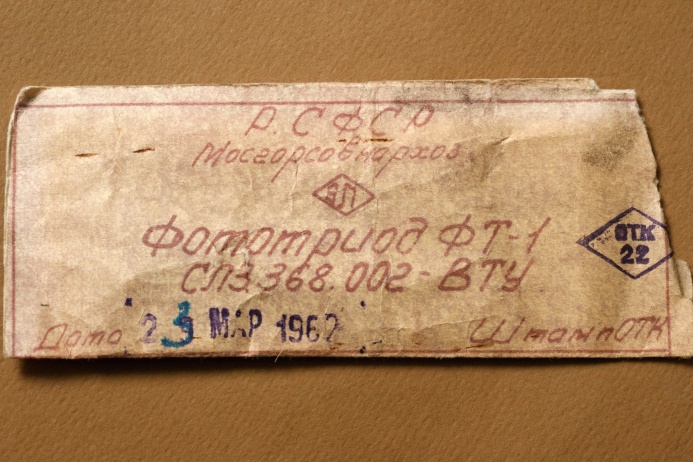 Р.СФСР
Мосгорсовнархоз
ЯП
Фототриод ФТ-1
СЛ3.368.002-ВТУ
ОТК
22
Дата 23 МАР 1962
Штамп ОТК